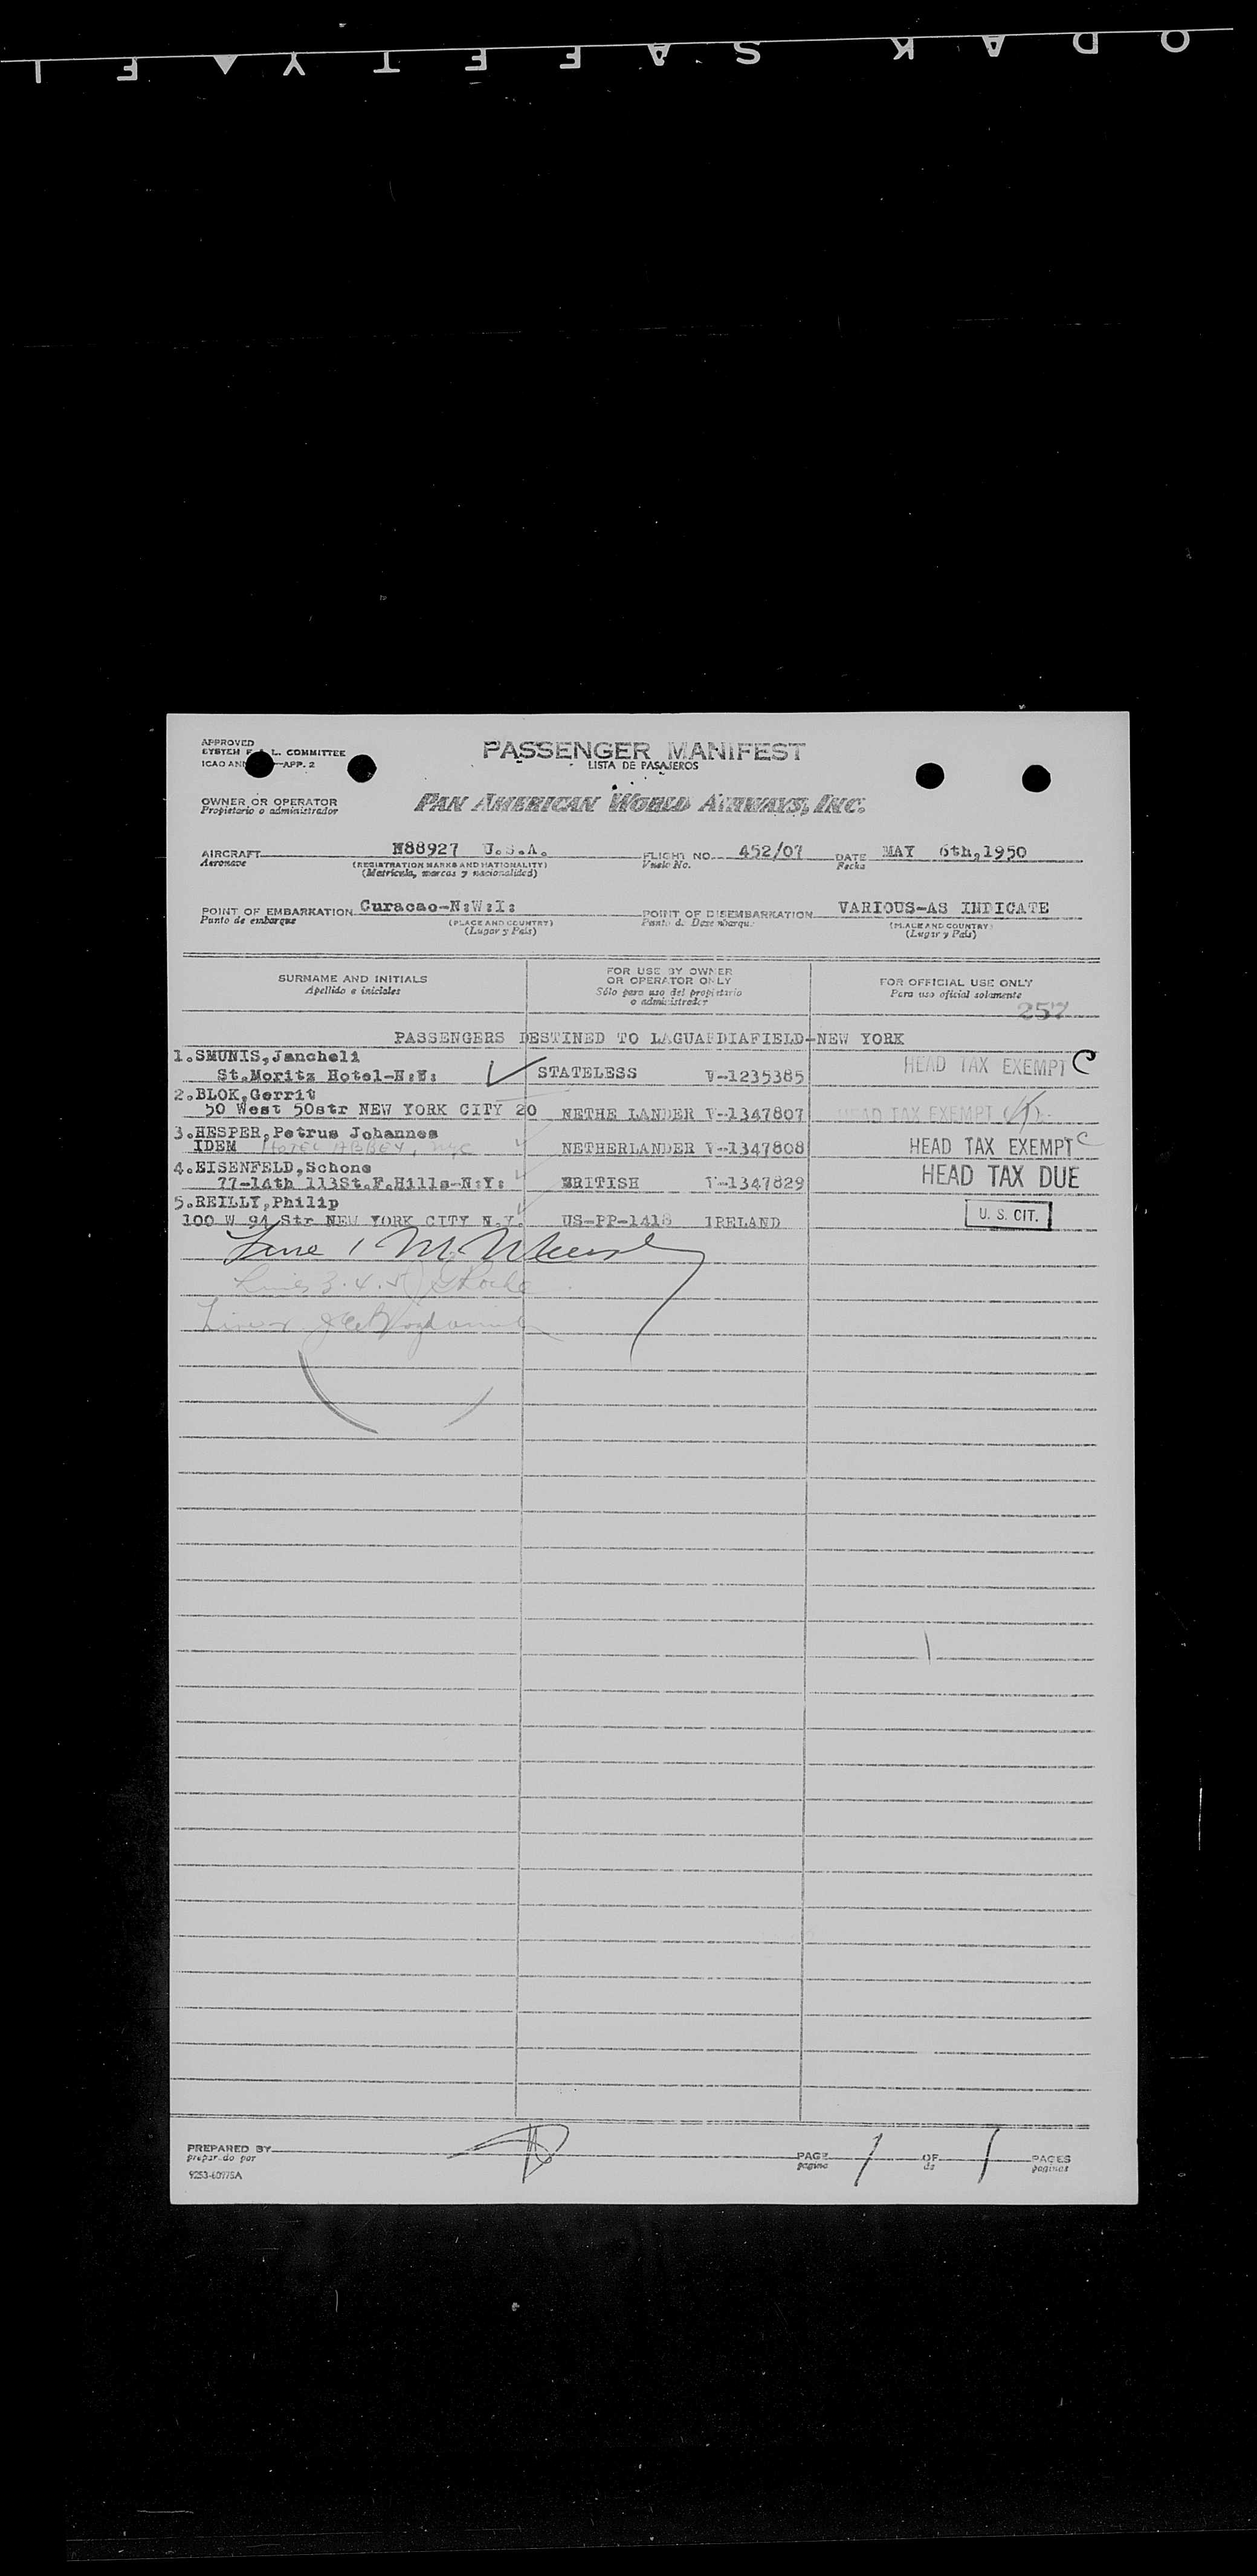 KODAK SAFETY FI
APPROVED
SYSTEM F. L. COMMITTEE
ICAO ANN APP. 2
PASSENGER MANIFEST
LISTA DE PASAJEROS
OWNER OR OPERATOR
Propietario o administrador
PAN AMERICAN WORLD AIRWAYS, INC.
AIRCRAFT N88927 U.S.A. FLIGHT NO. 452/07 DATE MAY 6th,1950
Aeronave (REGISTRATION MARKS AND NATIONALITY) Vuelo No. Fecha
(Matrícula, marcas y nacionalidad)
POINT OF EMBARKATION Curacao-N:W:I: POINT OF DISEMBARKATION VARIOUS-AS INDICATE
Punto de embarque (PLACE AND COUNTRY) Punto de Desembarque (PLACE AND COUNTRY)
(Lugar y País) (Lugar y País)
SURNAME AND INITIALS FOR USE BY OWNER OR OPERATOR ONLY FOR OFFICIAL USE ONLY
Apellido e iniciales Sólo para uso del propietario o administrador Para uso oficial solamente
257
PASSENGERS DESTINED TO LAGUARDIAFIELD-NEW YORK
1.SMUNIS,Jancheli
St.Moritz Hotel-N:Y: STATELESS V-1235385 HEAD TAX EXEMPT C
2.BLOK,Gerrit
50 West 50str NEW YORK CITY 20 NETHE LANDER V-1347807 HEAD TAX EXEMPT
3.HESPER,Petrus Johannes
IDEM HOTEL ABBEY, NYC NETHERLANDER V-1347808 HEAD TAX EXEMPT C
4.EISENFELD,Schone
77-14th 113St.F.Hills-N:Y: BRITISH V-1347829 HEAD TAX DUE
5.REILLY,Philip
100 W 94 Str NEW YORK CITY N.Y. US-PP-1418 IRELAND U. S. CIT.
Line 1 M.
Lines 3.4.5
PREPARED BY PAGE 1 OF 1 PAGES
preparado por página de páginas
9253-60975A